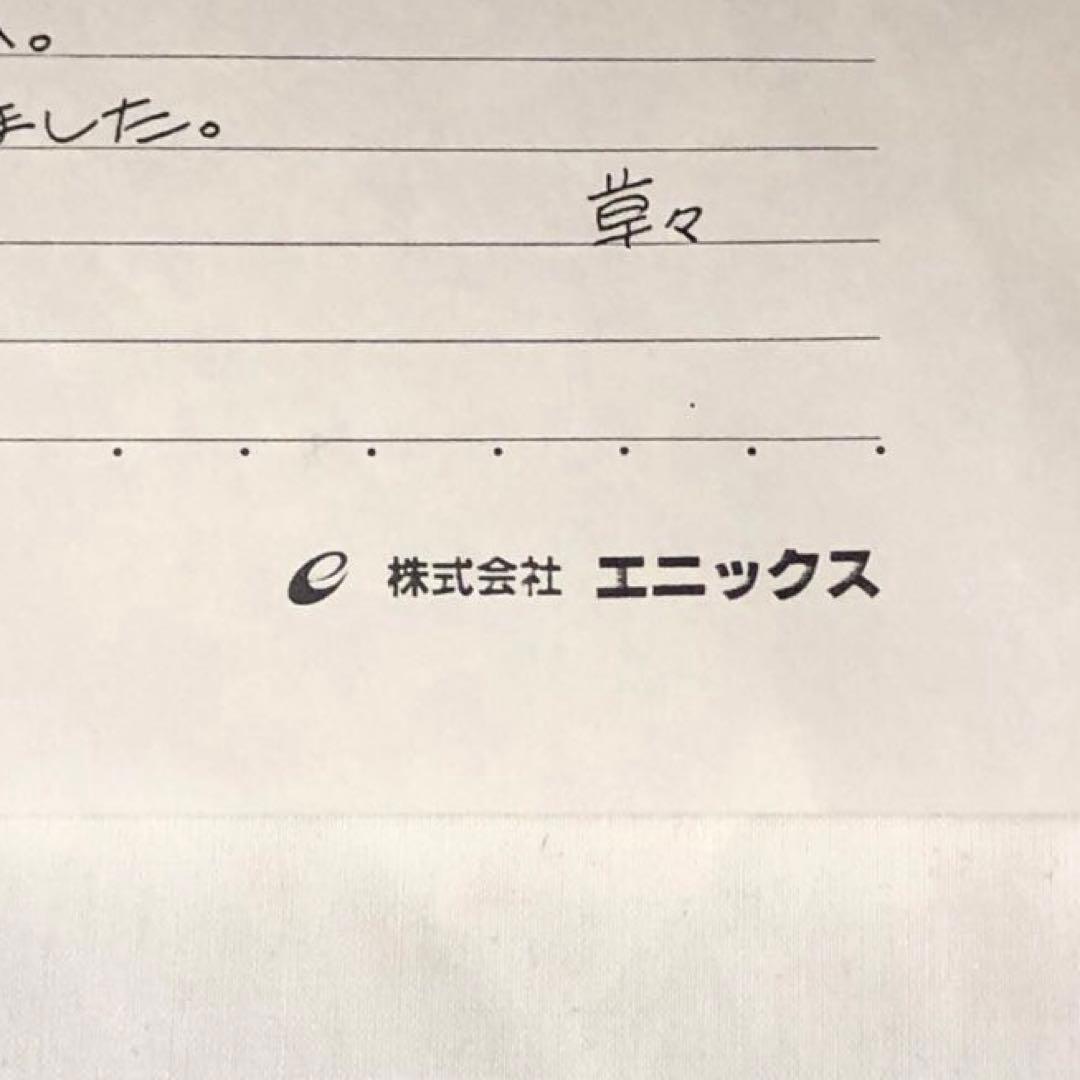 。
ました。
草々
e 株式会社 エニックス